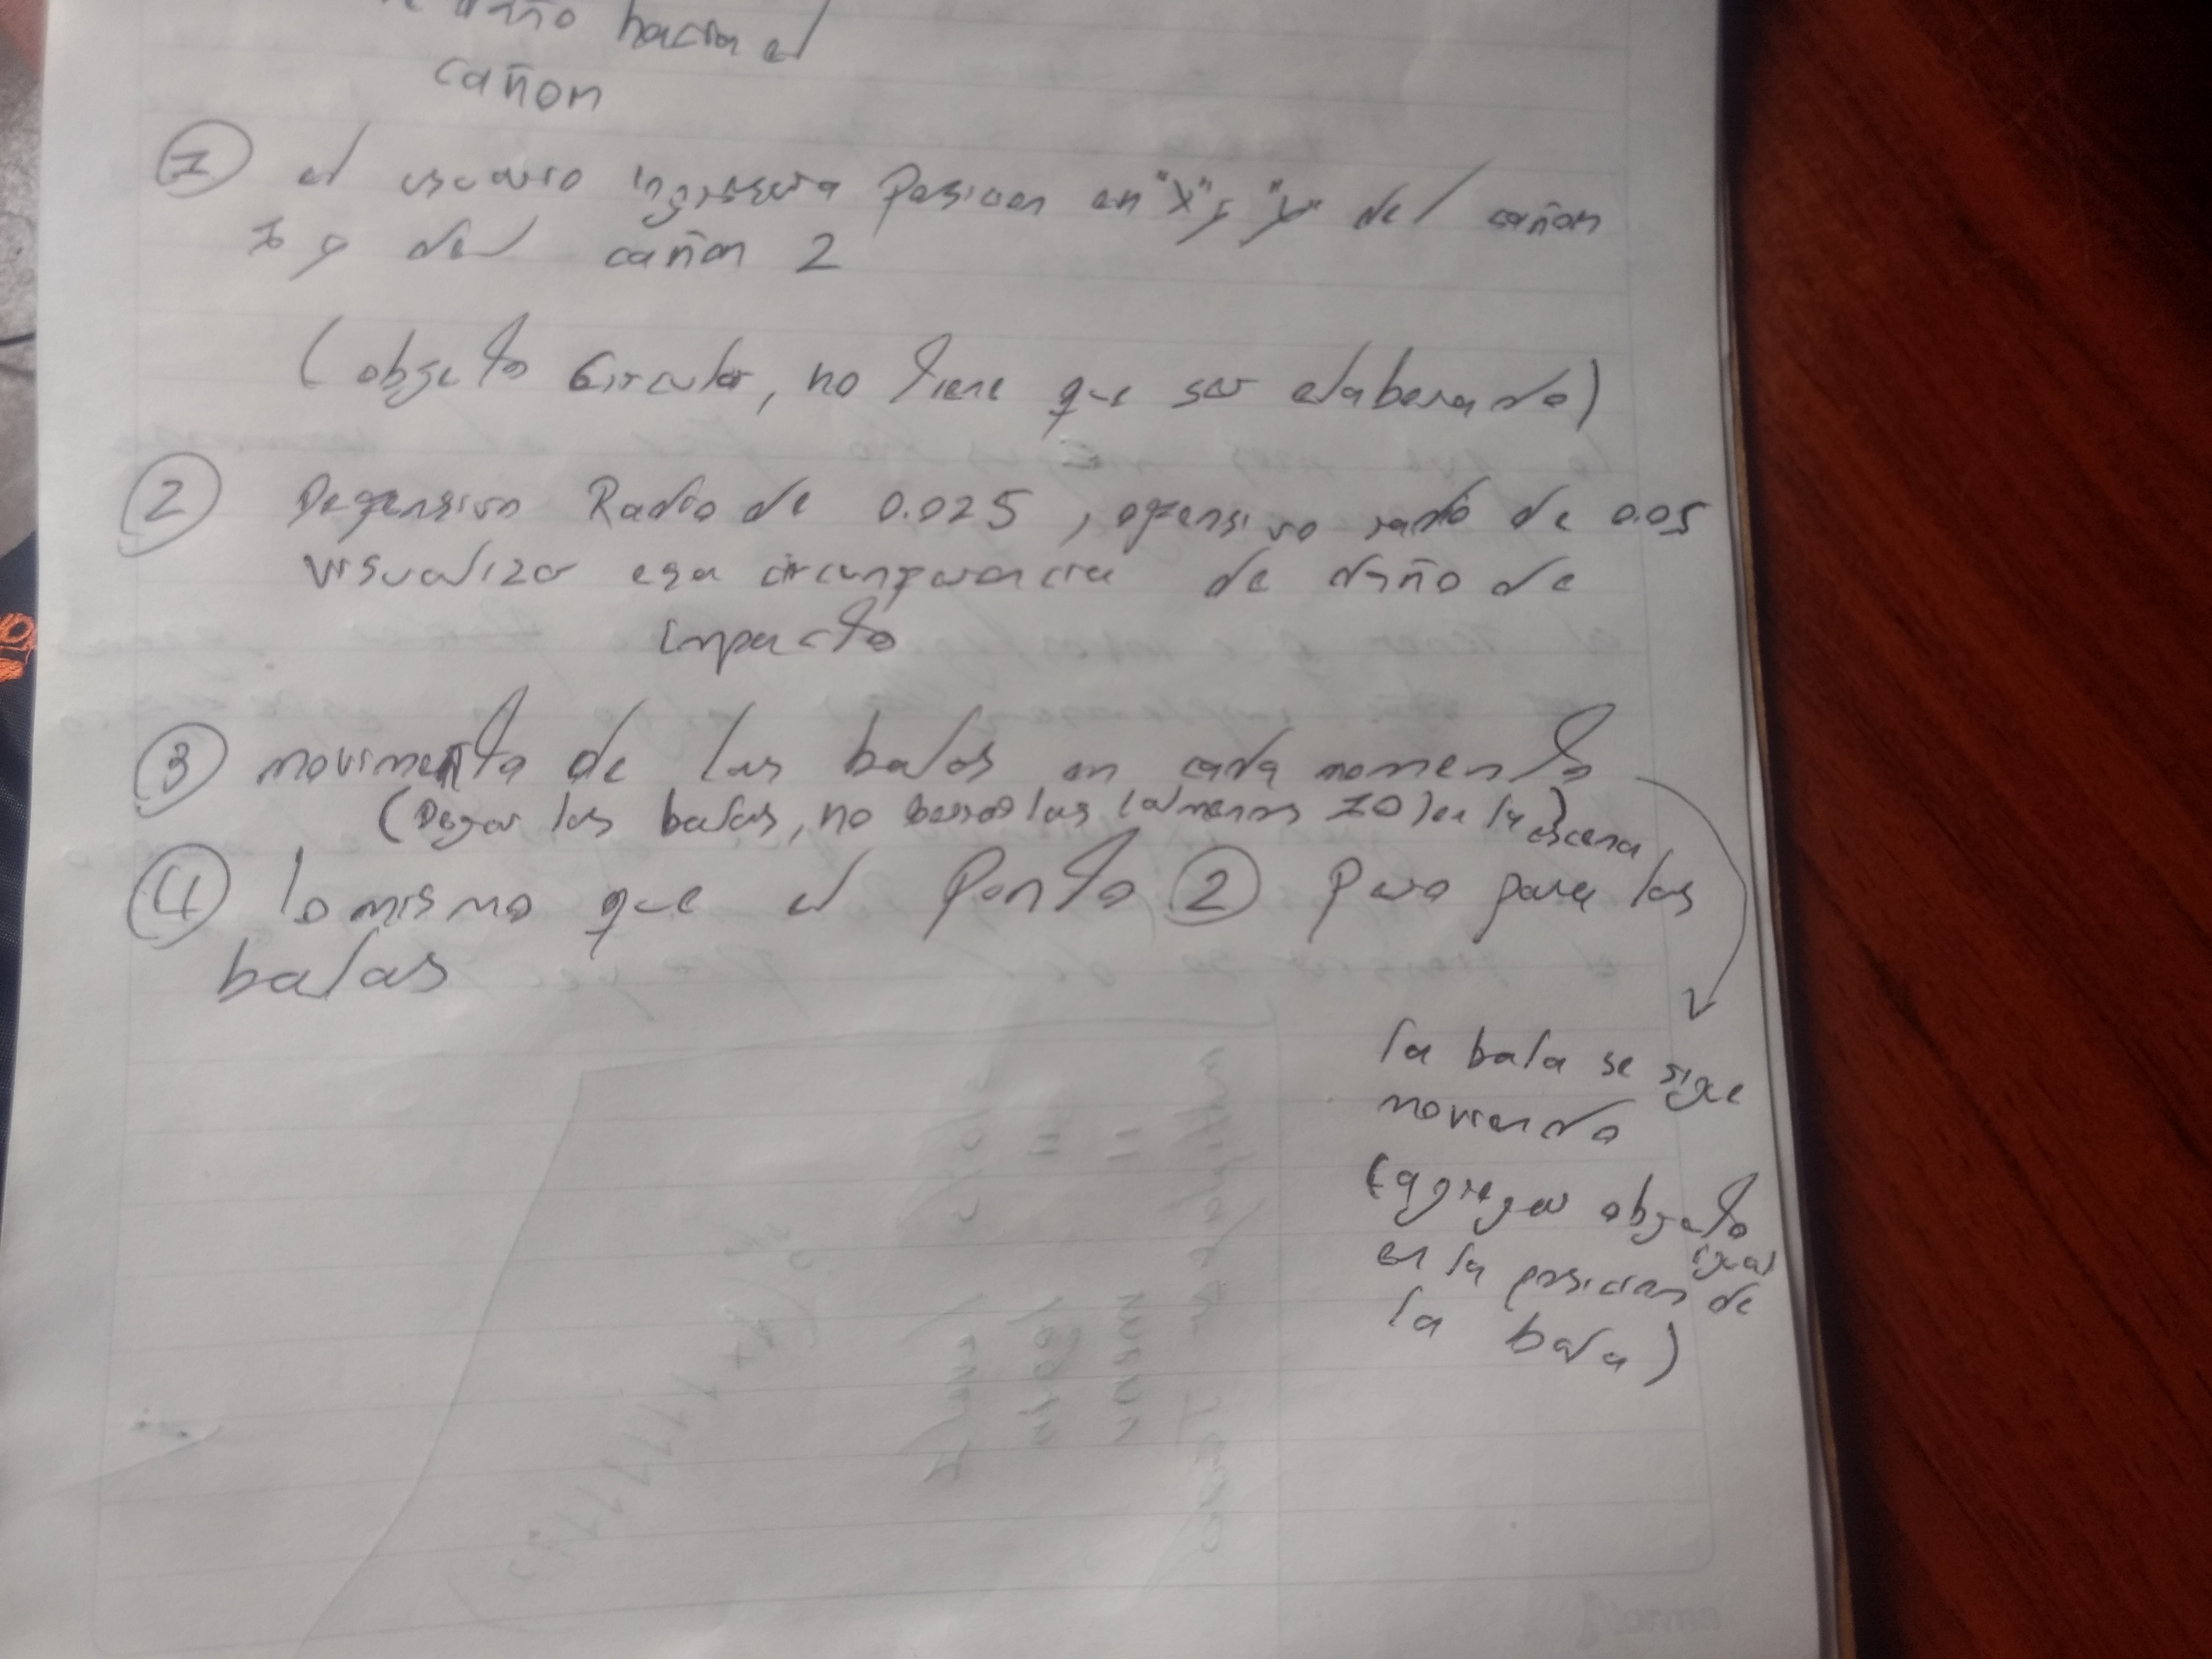 daño hacia el
cañon
① el usuario ingresara Posicion en "X" y "Y" del cañon
1 y del cañon 2
(objeto Circular, no tiene que ser elaborado)
② Defensivo Radio de 0.025, ofensivo radio de 0.05
visualizar esa circunferencia de daño de
impacto
③ movimento de las balas en cada momento
(Dejar las balas, no borrarlas (al menos 10) en la escena)
④ lo mismo que el Ponto ② Pero para las
balas
la bala se sigue
moviendo
(agregar objeto
igual
en la posicion de
la bala)